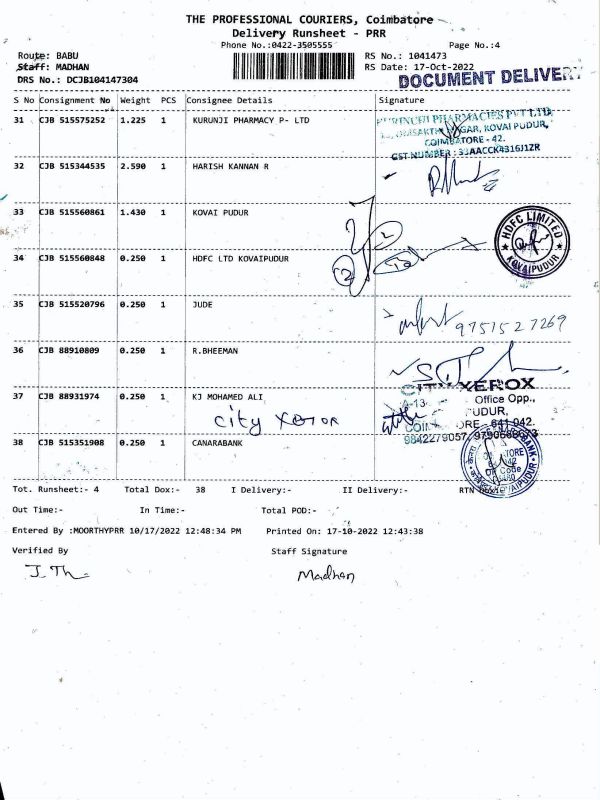 THE PROFESSIONAL COURIERS, Coimbatore
Delivery Runsheet - PRR
Phone No.:0422-3505555 Page No.:4
Route: BABU RS No.: 1041473
Staff: MADHAN RS Date: 17-Oct-2022
DRS No.: DCJB104147304 DOCUMENT DELIVERY
S No Consignment No Weight PCS Consignee Details Signature
31 CJB 515575252 1.225 1 KURUNJI PHARMACY P- LTD
PHARMACIES PVT LTD
NAGAR, KOVAI PUDUR,
COIMBATORE - 42.
GST NUMBER : 33AACCK4316J1ZR
32 CJB 515344535 2.590 1 HARISH KANNAN R
33 CJB 515560861 1.430 1 KOVAI PUDUR
HDFC LIMITED
KOVAIPUDUR
34 CJB 515560848 0.250 1 HDFC LTD KOVAIPUDUR
35 CJB 515520796 0.250 1 JUDE
9751527269
36 CJB 88910809 0.250 1 R.BHEEMAN
CITY XEROX
37 CJB 88931974 0.250 1 KJ MOHAMED ALI
A-13 Office Opp.,
city xerox PUDUR,
ORE - 641 042.
9842279057,
38 CJB 515351908 0.250 1 CANARABANK
Tot. Runsheet:- 4 Total Dox:- 38 I Delivery:- II Delivery:- RTN
Out Time:- In Time:- Total POD:-
Entered By :MOORTHYPRR 10/17/2022 12:48:34 PM Printed On: 17-10-2022 12:43:38
Verified By Staff Signature
Madhan